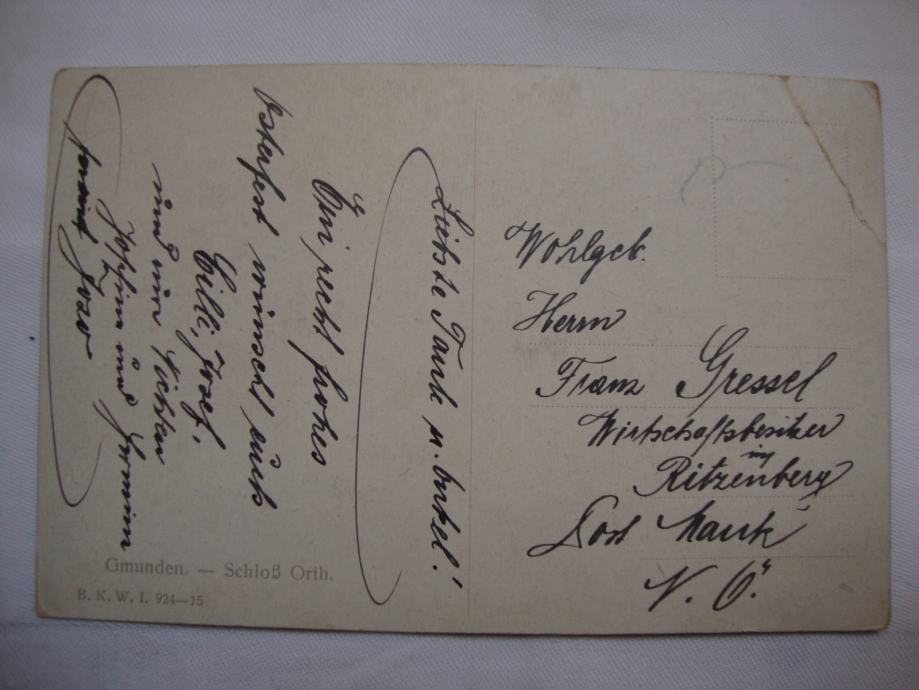 Liebste Tante u. Onkel!
Ein recht frohes
Osterfest wünscht euch
Cilli, Josef,
und nur
und
Wohlgeb.
Herrn
Franz Gressel
Wirtschaftsbesitzer
in
Ritzenberg
Post Mank
N. Ö.
Gmunden. — Schloß Orth.
B. K. W. I. 924—15